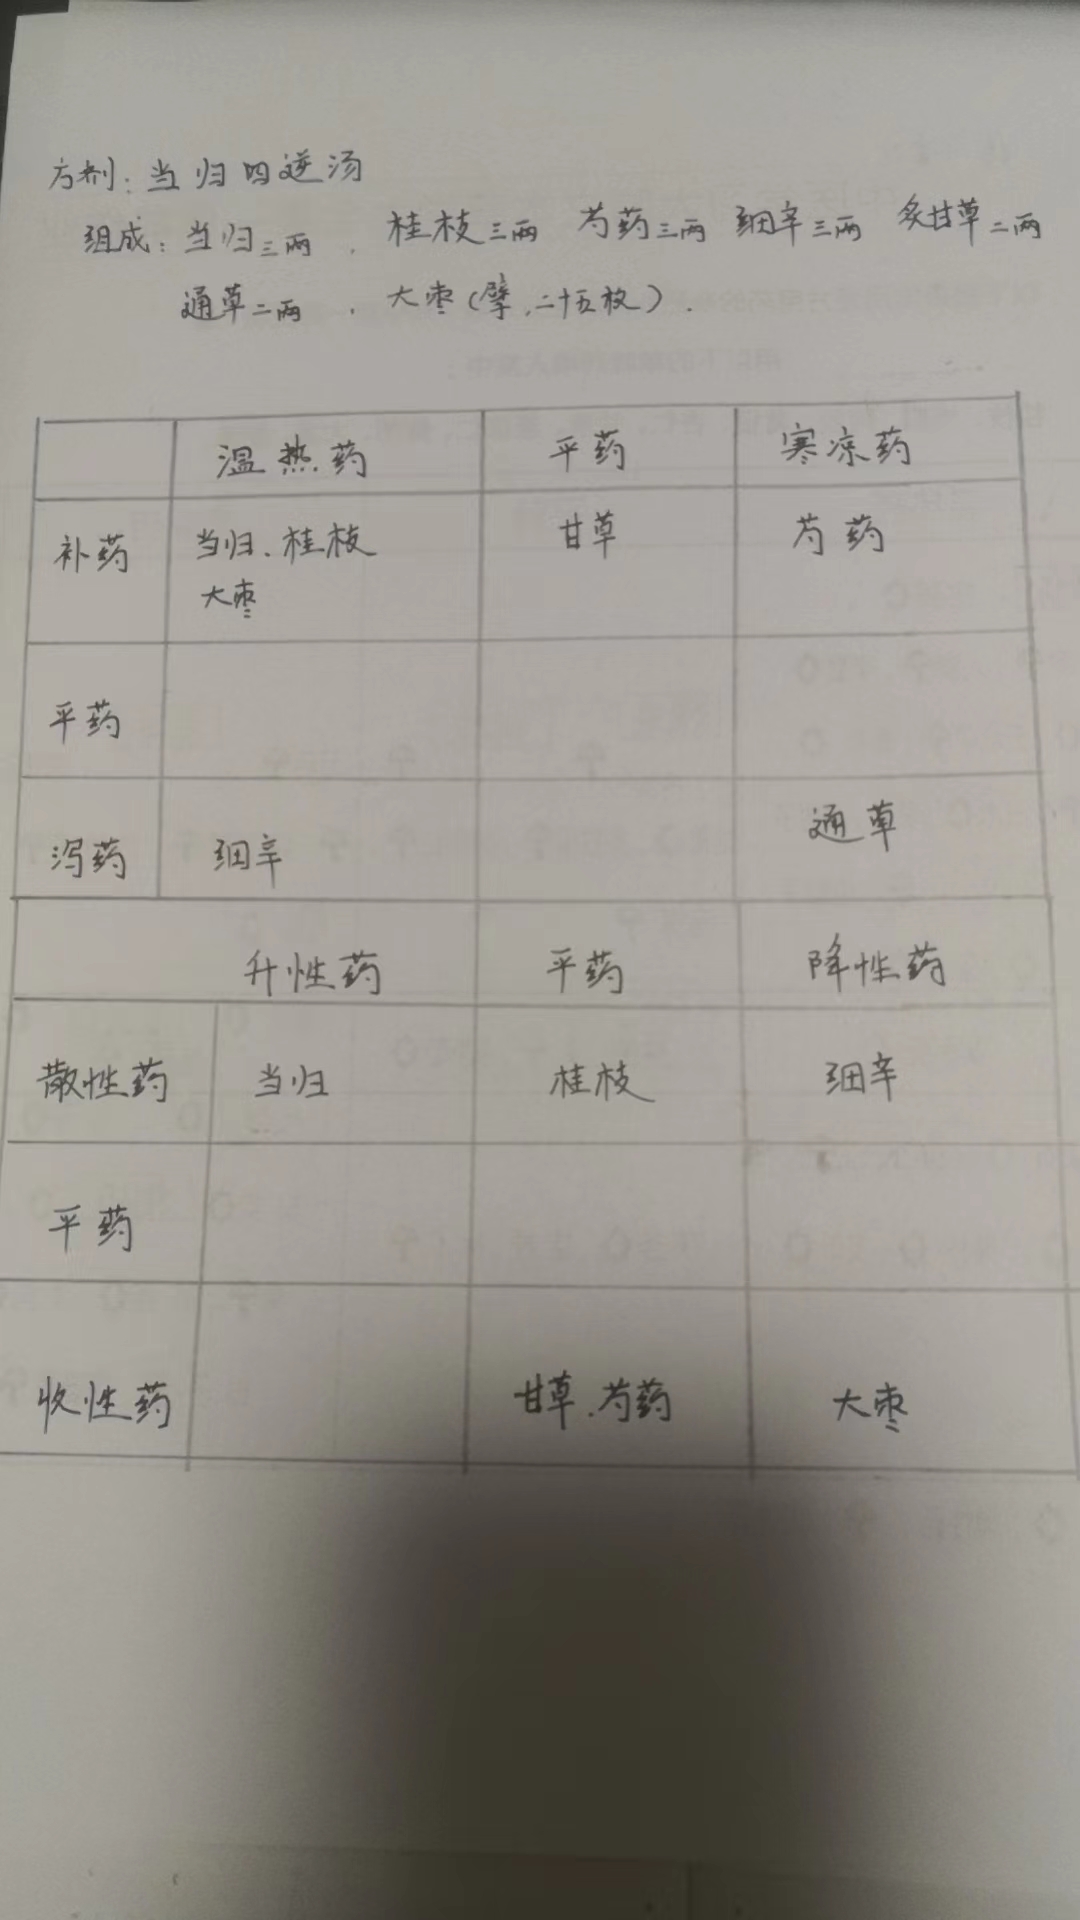 方剂：当归四逆汤
组成：当归三两，桂枝三两 芍药三两 细辛三两 炙甘草二两
通草二两，大枣（擘，二十五枚）.
温热药 平药 寒凉药
补药 当归.桂枝 甘草 芍药
大枣
平药
泻药 细辛 通草
升性药 平药 降性药
散性药 当归 桂枝 细辛
平药
收性药 甘草.芍药 大枣